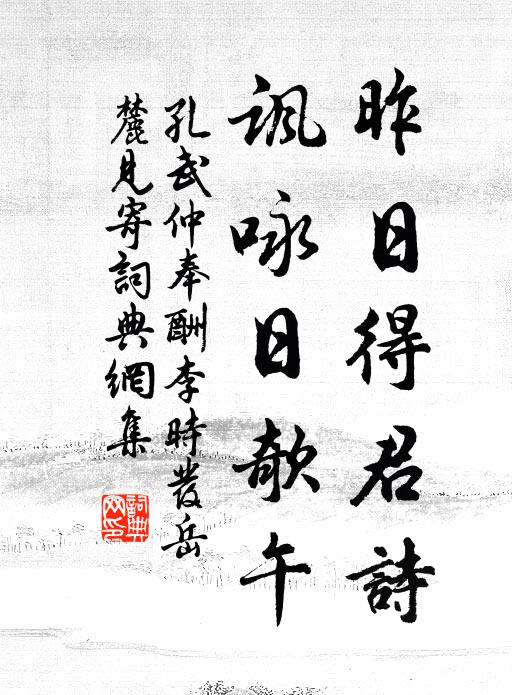 昨日得君詩
諷咏日欹午
孔武仲奉酬李時發岳
麓見寄詞典網集
詞典
网印